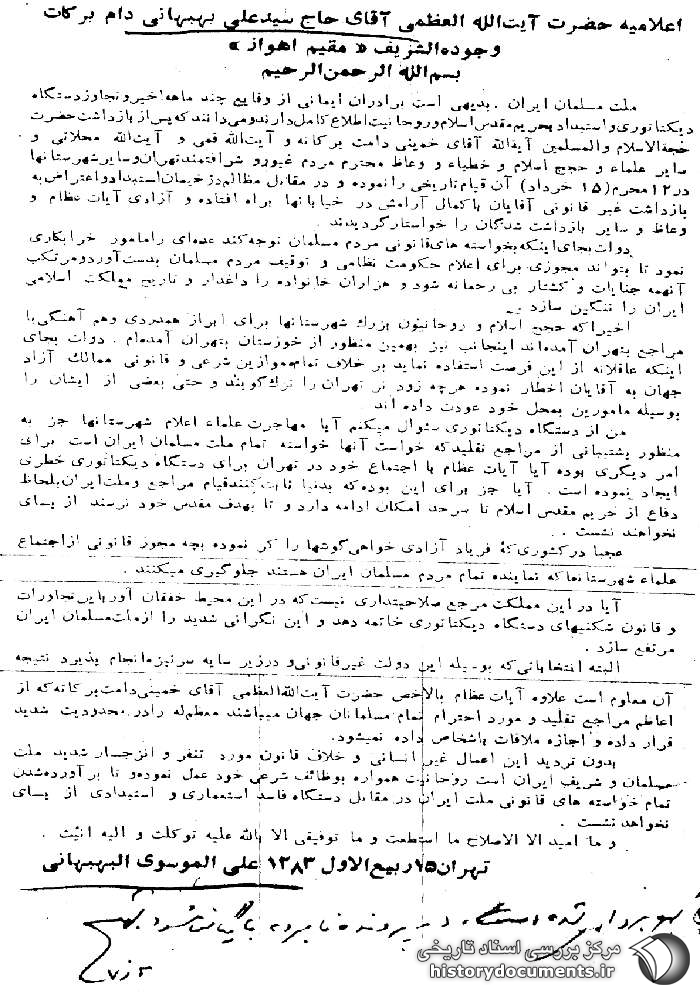 اعلامیه حضرت آیت‌الله العظمی آقای حاج سیدعلی بهبهانی دام برکات
وجوده‌الشریف « مقیم اهواز »
بسم‌الله الرحمن الرحیم
ملت مسلمان ایران . بدیهی است برادران ایمانی از وقایع چند ماهه اخیر و تجاوز دستگاه
دیکتاتوری و استبداد بحریم مقدس اسلام و روحانیت اطلاع کامل دارند و می دانند که پس از بازداشت حضرت
حجة‌الاسلام والمسلمین آیة‌الله آقای خمینی دامت برکاته و آیت‌الله قمی و آیت‌الله محلاتی و
سایر علماء و حجج اسلام و خطباء و وعاظ محترم مردم غیور و شرافتمند تهران و سایر شهرستانها
در ۱۲ محرم (۱۵ خرداد) آن قیام تاریخی را نموده و در مقابل مظالم دژخیمان استبداد و اعتراض به
بازداشت غیر قانونی آقایان باکمال آرامش در خیابانها براه افتاده و آزادی آیات عظام و
وعاظ و سایر بازداشت شدگان را خواستار گردیدند .
دولت بجای اینکه بخواسته های قانونی مردم مسلمان توجه کند عده‌ای را مامور خرابکاری
نمود تا بتواند مجوزی برای اعلام حکومت نظامی و توقیف مردم مسلمان بدست آورد و مرتکب
آنهمه جنایات و کشتار بی رحمانه شود و هزاران خانواده را داغدار و تاریخ مملکت اسلامی
ایران را ننگین سازد .
اخیرا که حجج اسلام و روحانیون بزرگ شهرستانها برای ابراز همدردی وهم آهنگی با
مراجع بتهران آمده‌اند اینجانب نیز بهمین منظور از خوزستان بتهران آمده‌ام . دولت بجای
اینکه عاقلانه از این فرصت استفاده نماید بر خلاف تمام موازین شرعی و قانونی ممالک آزاد
جهان به آقایان اخطار نموده هرچه زود تر تهران را ترک گویند و حتی بعضی از ایشان را
بوسیله مامورین بمحل خود عودت داده اند
من از دستگاه دیکتاتوری سئوال میکنم آیا مهاجرت علماء اعلام شهرستانها جز به
منظور پشتیبانی از مراجع تقلید که خواست آنها خواسته تمام ملت مسلمان ایران است برای
امر دیگری بوده آیا آیات عظام با اجتماع خود در تهران برای دستگاه دیکتاتوری خطری
ایجاد نموده است . آیا جز برای این بوده که بدنیا ثابت کنند قیام مراجع وملت ایران بلحاظ
دفاع از حریم مقدس اسلام تا سرحد امکان ادامه دارد و تا بهدف مقدس خود نرسند از پای
نخواهند نشست . .
عجبا در کشوری که فریاد آزادی خواهی گوشها را کر نموده بچه مجوز قانونی از اجتماع
علماء شهرستانها که نماینده تمام مردم مسلمان ایران هستند جلوگیری میکنند .
آیا در این مملکت مرجع صلاحیتداری نیست که در این محیط خفقان آور باین تجاوزات
و قانون شکنیهای دستگاه دیکتاتوری خاتمه دهد و این نگرانی شدید را از ملت مسلمان ایران
مرتفع سازد .
البته انتخاباتی که بوسیله این دولت غیر قانونی و در زیر سایه سرنیزه انجام پذیرد نتیجه
آن معلوم است علاوه آیات عظام بالاخص حضرت آیت‌الله‌العظمی آقای خمینی دامت برکاته که از
اعاظم مراجع تقلید و مورد احترام تمام مسلمانان جهان میباشند معظم‌له را در محدودیت شدید
قرار داده و اجازه ملاقات باشخاص داده نمیشود.
بدون تردید این اعمال غیر انسانی و خلاف قانون مورد تنفر و انزجار شدید ملت
مسلمان و شریف ایران است روحانیت همواره بوظائف شرعی خود عمل نموده و تا برآورده‌شدن
تمام خواسته های قانونی ملت ایران در مقابل دستگاه فاسد استعماری و استبدادی از پای
نخواهد نشست .
و ما امید الا الاصلاح ما استطعت و ما توفیقی الا بالله علیه توکلت و الیه انیب .
تهران ۱۵ ربیع الاول ۱۲۸۳ علی الموسوی البهبهانی
در پرونده نامبرده بایگانی شود
۷
مرکز بررسی اسناد تاریخی
historydocuments.ir